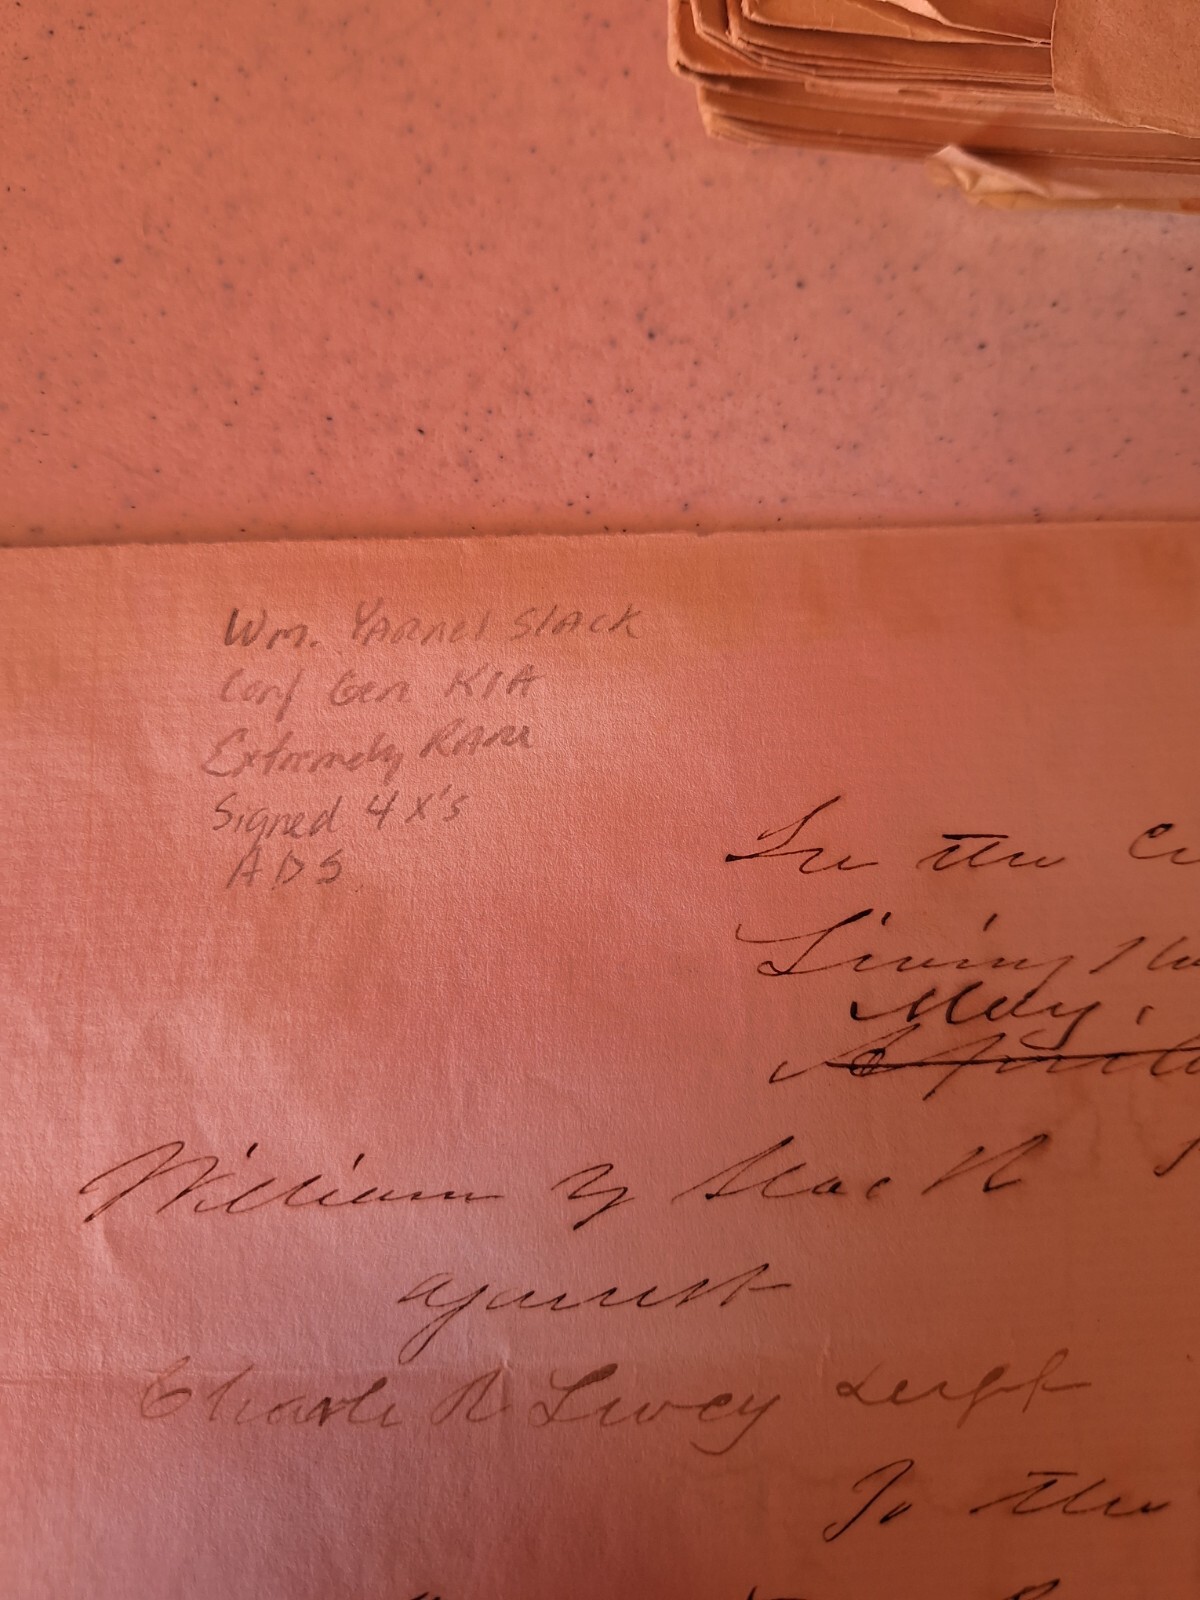 Wm. Yarnel Slack
Conf Gen KIA
Extremely Rare
Signed 4 X's
ADS
In the
Living
May,
April
William Y Slack
against
Charls R Livey Deft
To the